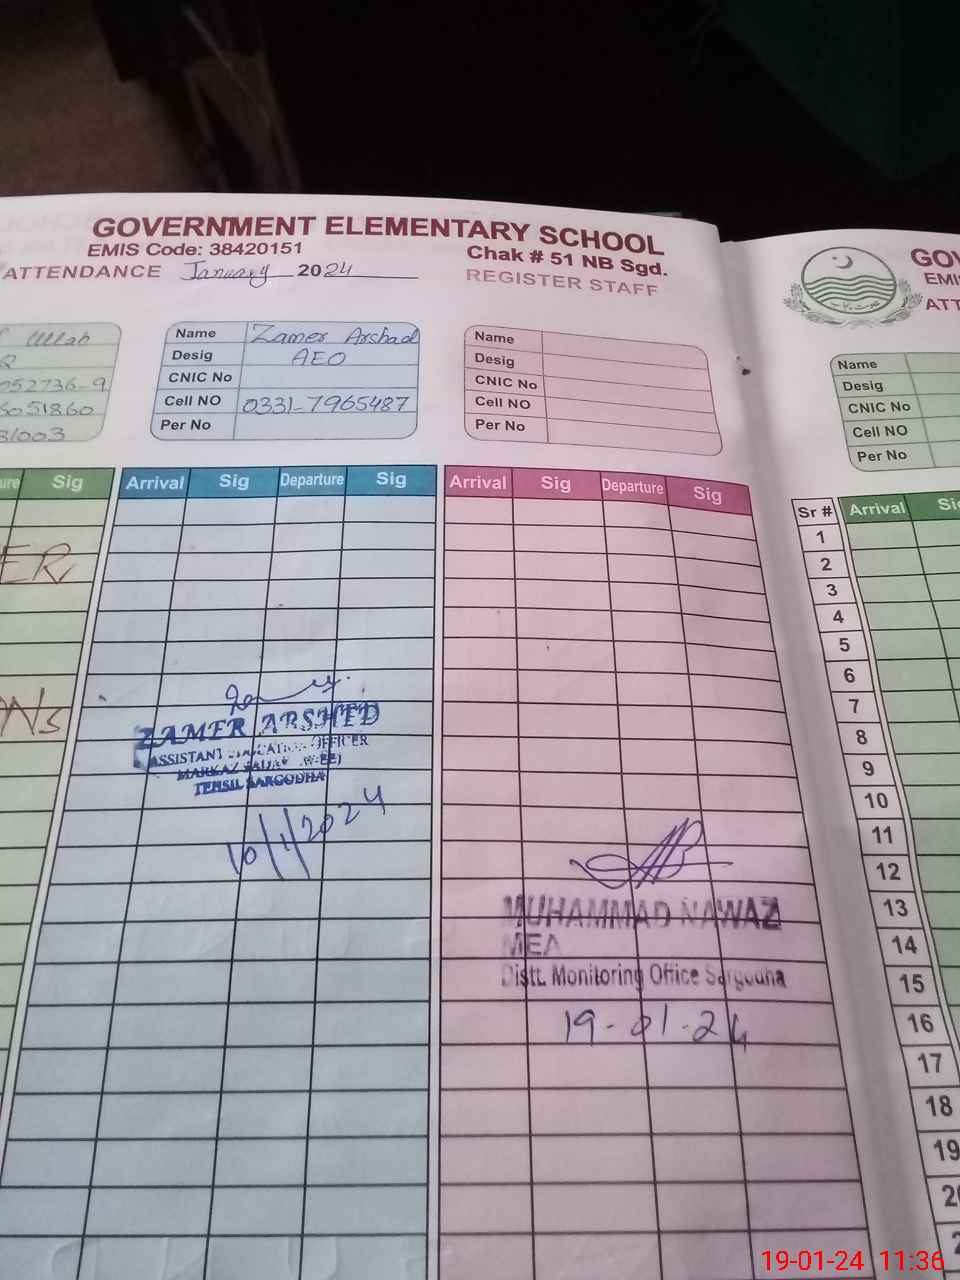 GOVERNMENT ELEMENTARY SCHOOL
EMIS Code: 38420151
Chak # 51 NB Sgd.
ATTENDANCE January 2024
REGISTER STAFF
Ullah
Q
052736-9
6051860
31003
Name Zamer Arshad
Desig AEO
CNIC No
Cell NO 0331-7965487
Per No
Name
Desig
CNIC No
Cell NO
Per No
GOV
EMI
ATT
Name
Desig
CNIC No
Cell NO
Per No
ure Sig
Arrival Sig Departure Sig
Arrival Sig Departure Sig
Sr # Arrival Sig
1
2
3
4
5
6
7
8
9
10
11
12
13
14
15
16
17
18
19
20
2
ER
NS
ZAMER ARSHED
ASSISTANT EDUCATION OFFICER
MARKAZ
TEHSIL SARGODHA
10/1/2024
MUHAMMAD NAWAZ
MEA
Distt. Monitoring Office Sargodha
19-01-24
19-01-24 11:36